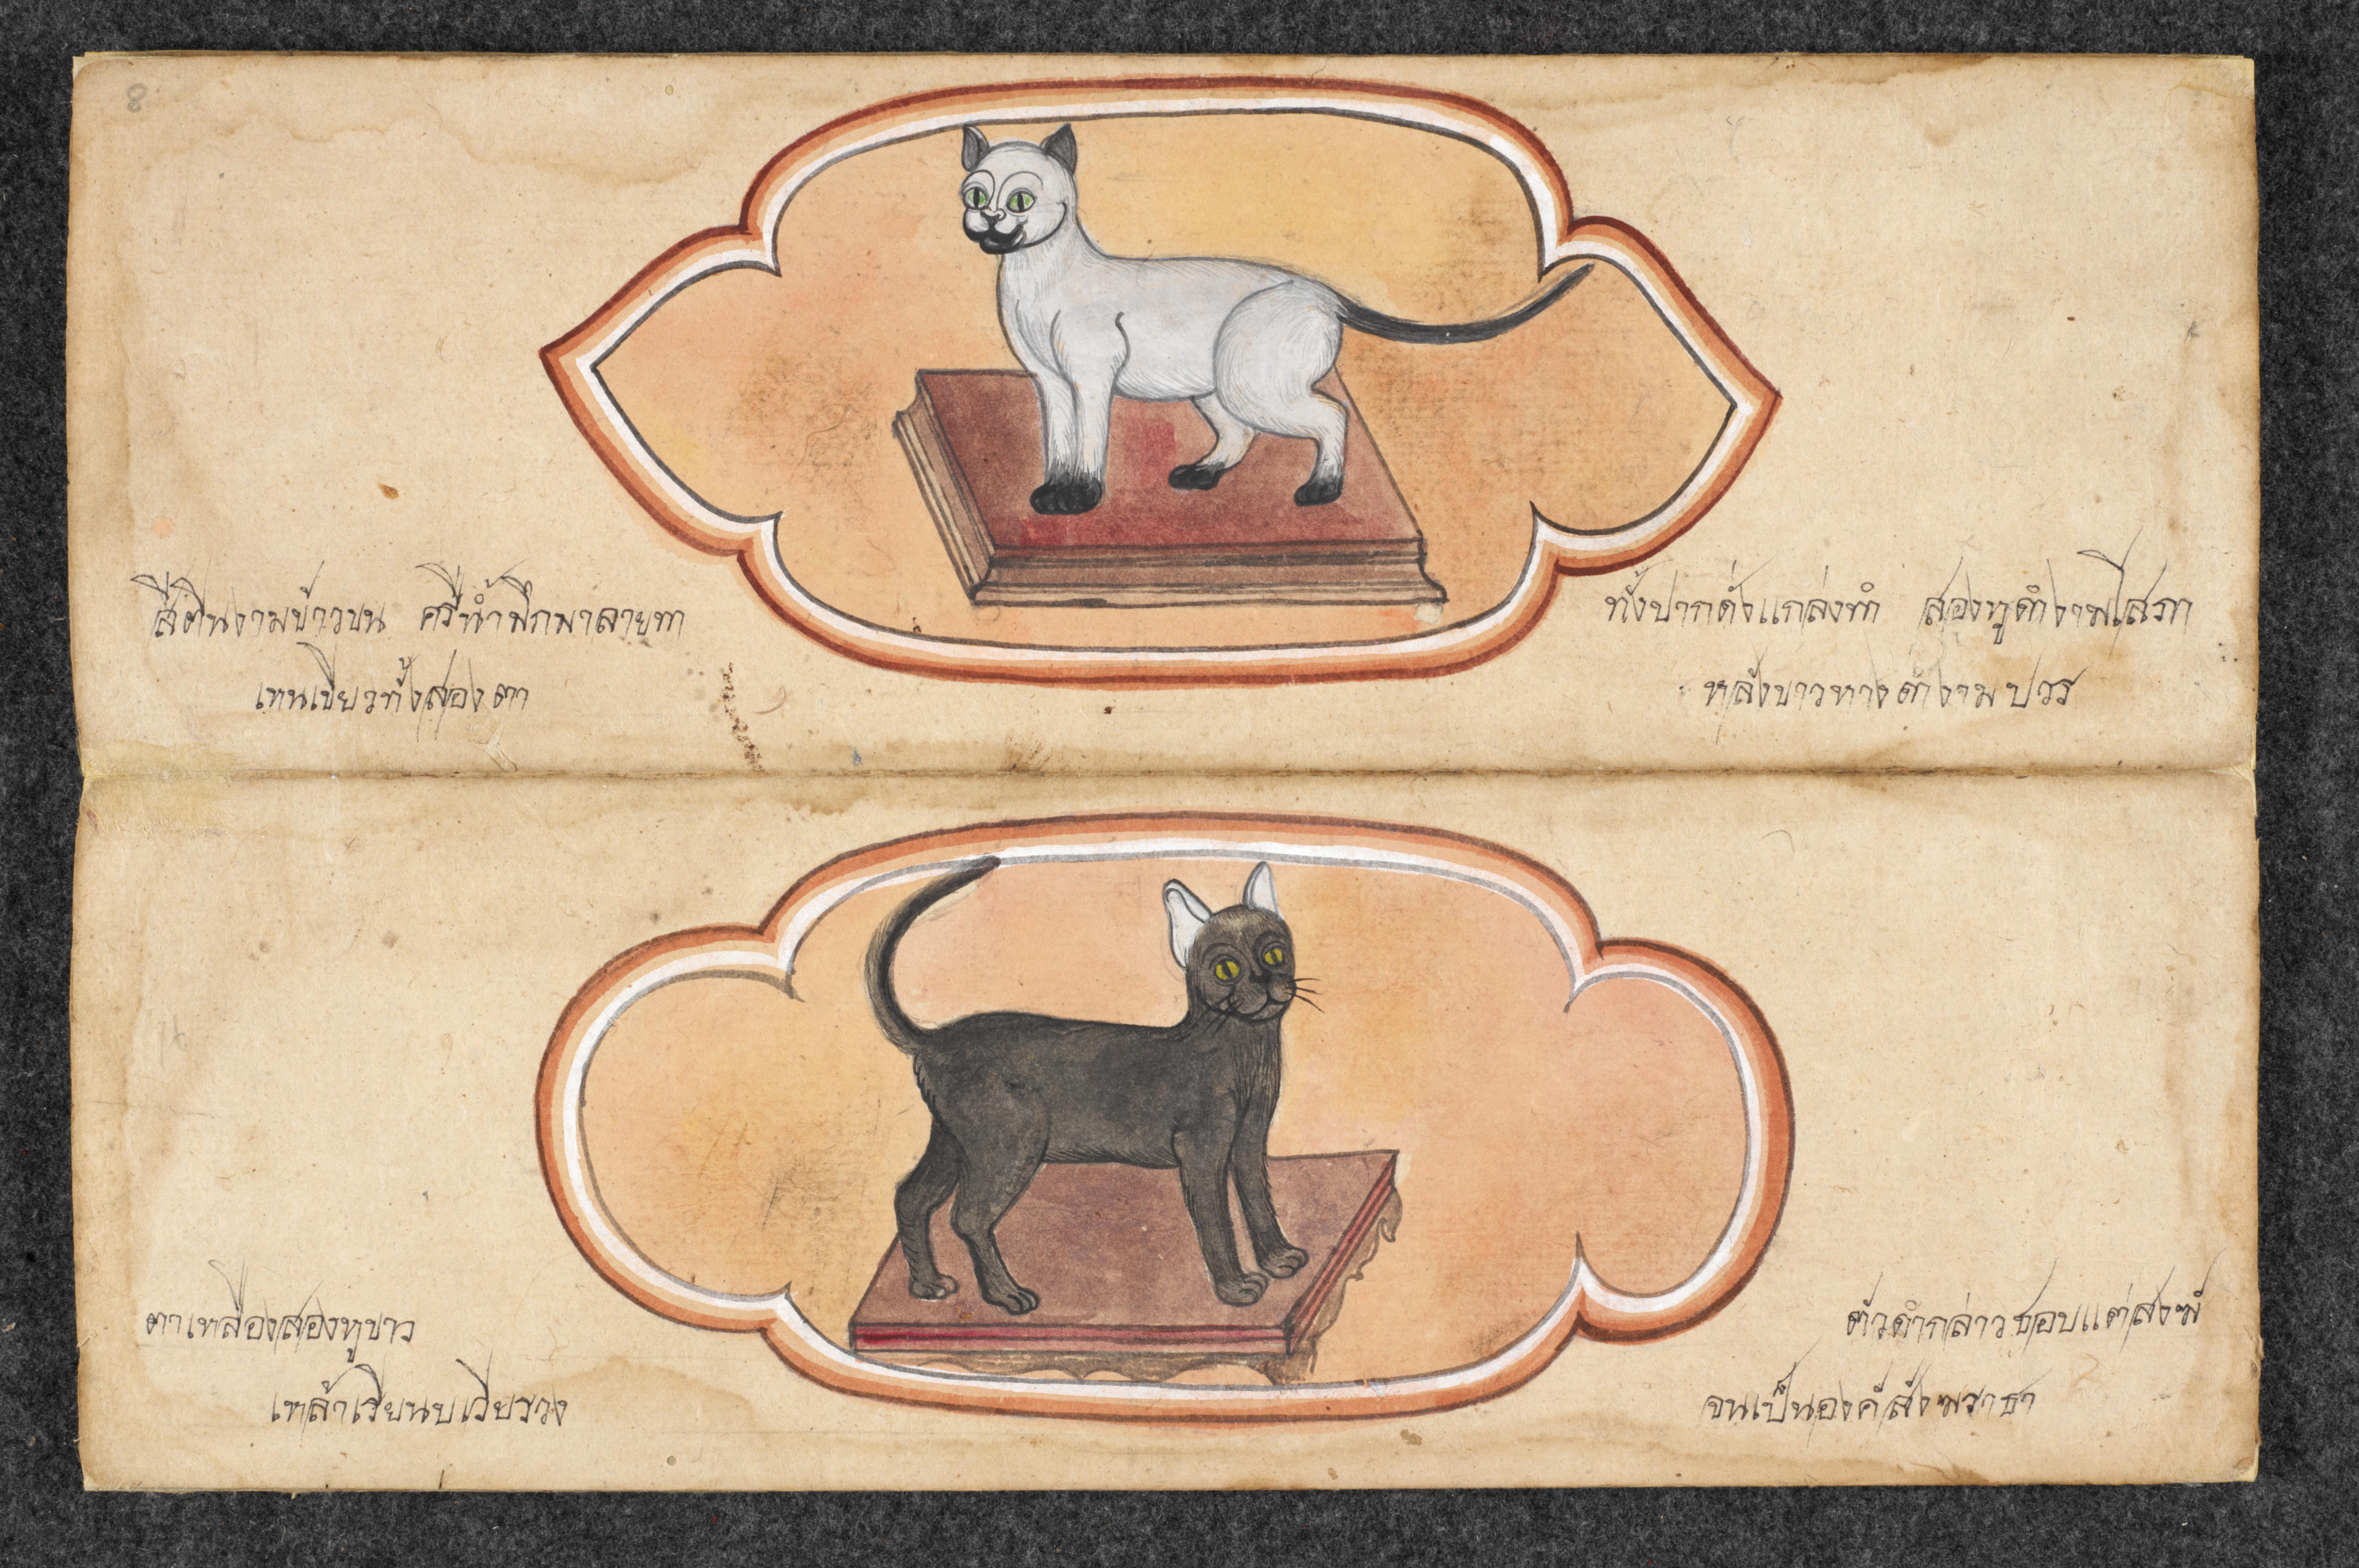 8
สี่ตีนงามข้าวขน ศรีน้ำมึกพาลายทา
เทนเขียวทั้งสองตา
ทั้งปากดั่งแกล่งทำ สองหูดำงามโสภา
หลังขาวหางดำงามปวร
ตาเหลืองสองหูขาว
เหล้าเรียน
ตัวดำกล่าวชอบแต่สงฆ์
จนเป็นองค์สังฆราชา